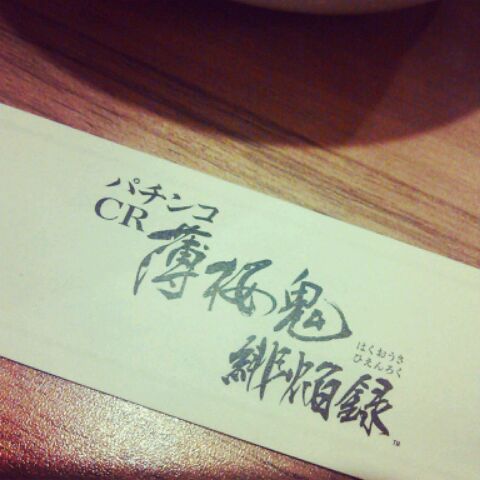 パチンコ
CR
薄桜鬼
はくおうき
ひえんろく
緋焔録
TM